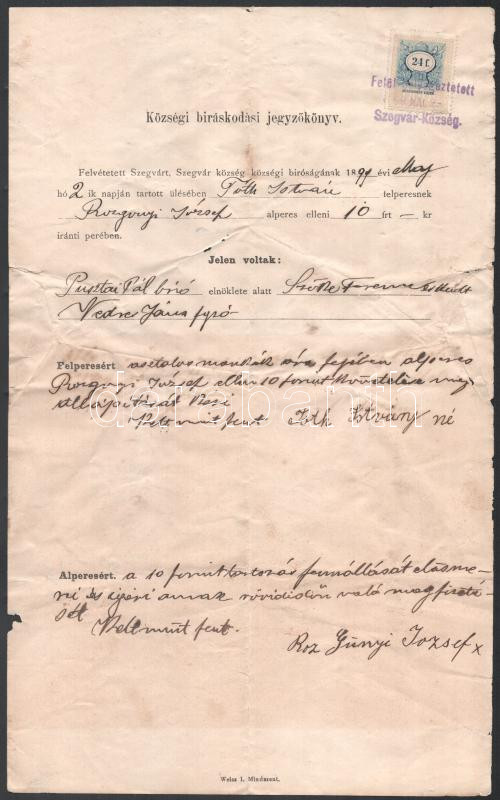 24 f.
Szegvár-Község.
Községi biráskodási jegyzőkönyv.
Felvétetett Szegvárt, Szegvár község községi biróságának 1891 évi Maj
hó 2 ik napján tartott ülésében Tóth István felperesnek
Rozgonyi József alperes elleni 10 frt — kr
iránti perében.
Jelen voltak:
Pusztai Pál biró elnöklete alatt Szőke Ferenc esküdt
Vedres János
Felperesért. asztalos munkák ára fejében alperes
Rozgonyi József ellen 10 forint követelése meg
állapítását kéri
Kelt mint fent Tóth Istvány né
Alperesért. a 10 forint tartozás fennállását elisme-
ri és igéri annak rövid időn való megfizeté-
sét
Kelt mint fent.
Roz Gunyi Jozsef x
darabanth
Weisz I. Mindszent.